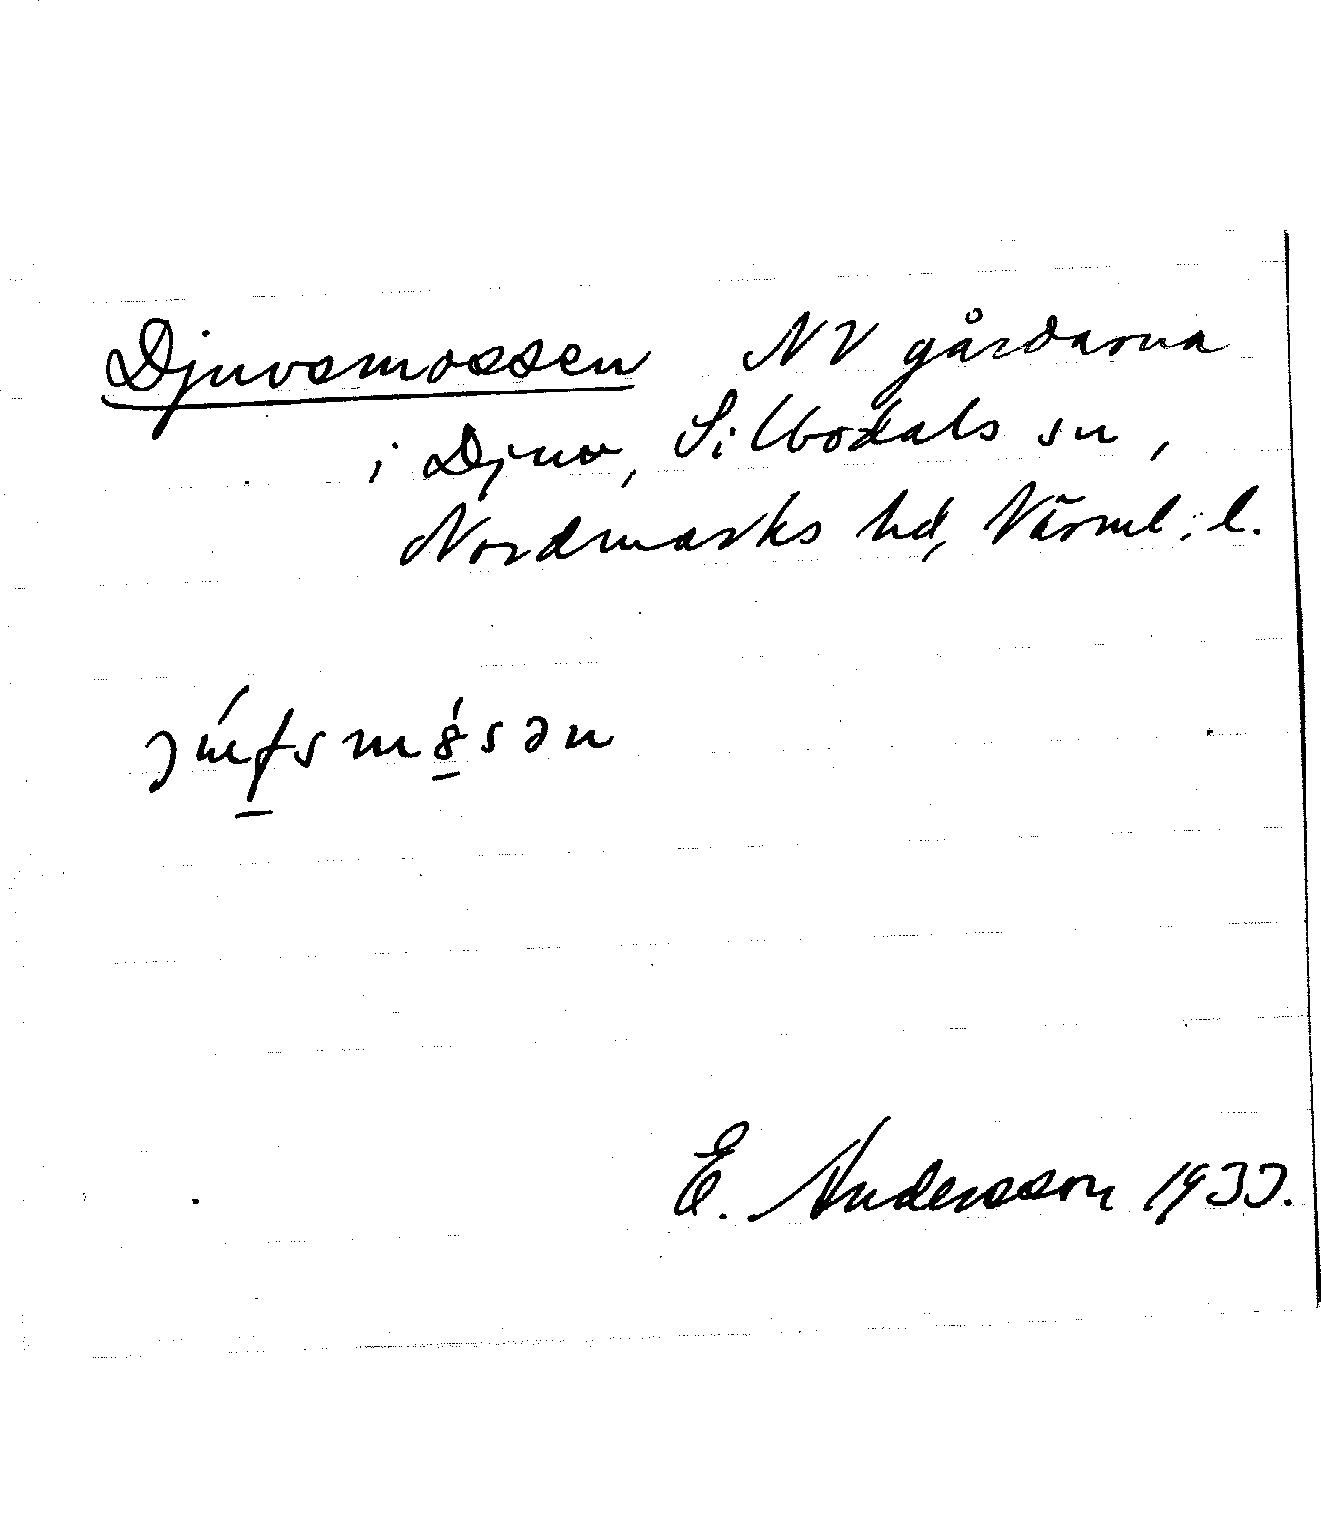 Djuvsmossen NV gårdarna
i Djuv, Silbodals sn,
Nordmarks hd, Värml. l.
E. Andersson 1933.